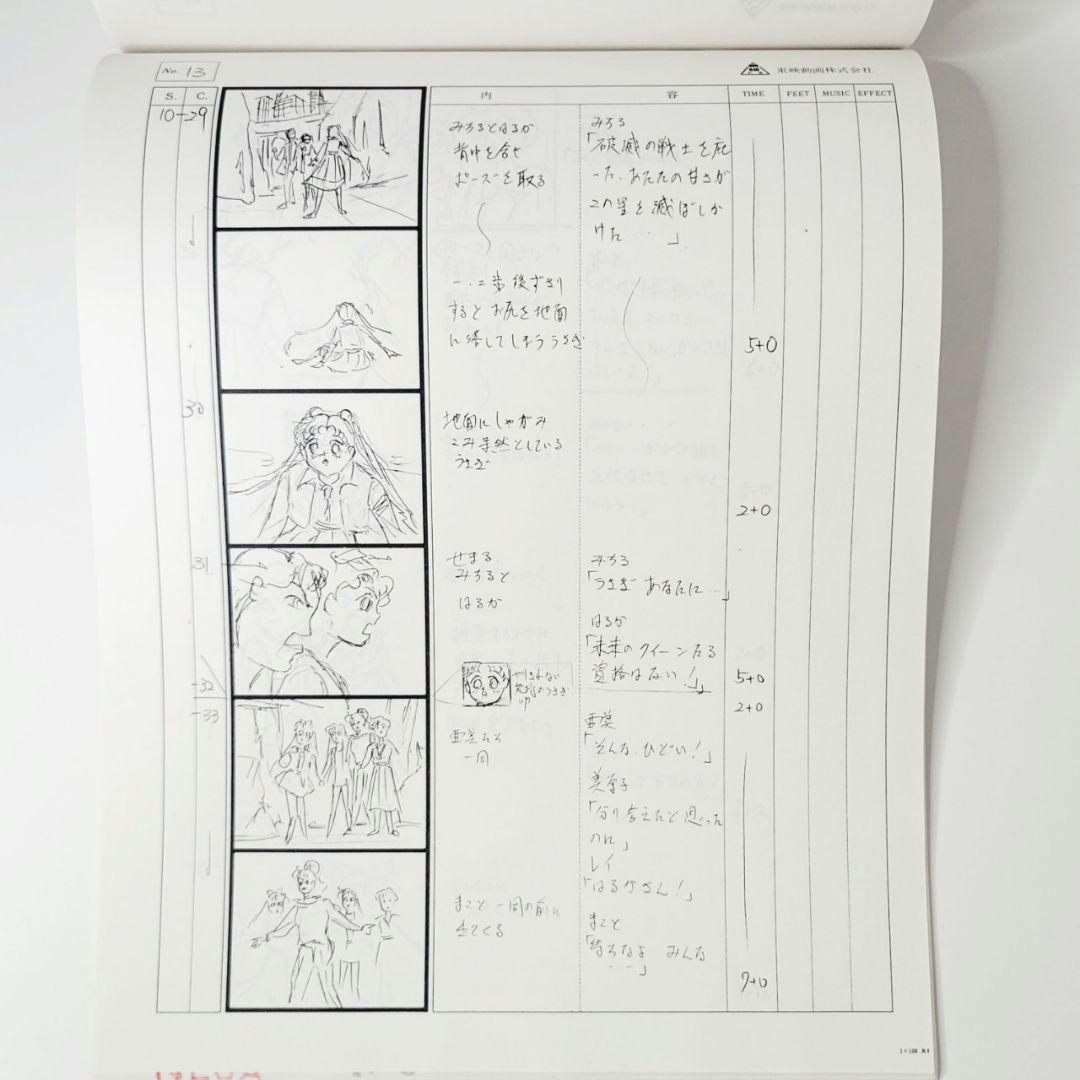 No. 13
東映動画株式会社
S. C. 内 容 TIME FEET MUSIC EFFECT
10-29
みちるとはるか
背中を合せ
ポーズを取る
みちる
「破滅の戦士を庇
った、あなたの甘さが
この星を滅ぼしか
けた…」
一、二歩後ずさり
するとお尻を地面
に落してしまううさぎ
5+0
30
地面にしゃがみ
こみ呆然としている
うさぎ
2+0
31
せまる
みちると
はるか
みちる
「うさぎ あなたに…」
はるか
「未来のクイーンたる
資格はない!」
5+0
-32
うさぎ
2+0
-33
亜美たち
一同
亜美
「そんな、ひどい!」
美奈子
「分り合えたと思った
のに」
レイ
「はるかさん!」
まこと 一同の前に
出てくる
まこと
「待ちなよ みんな
……」
7+0